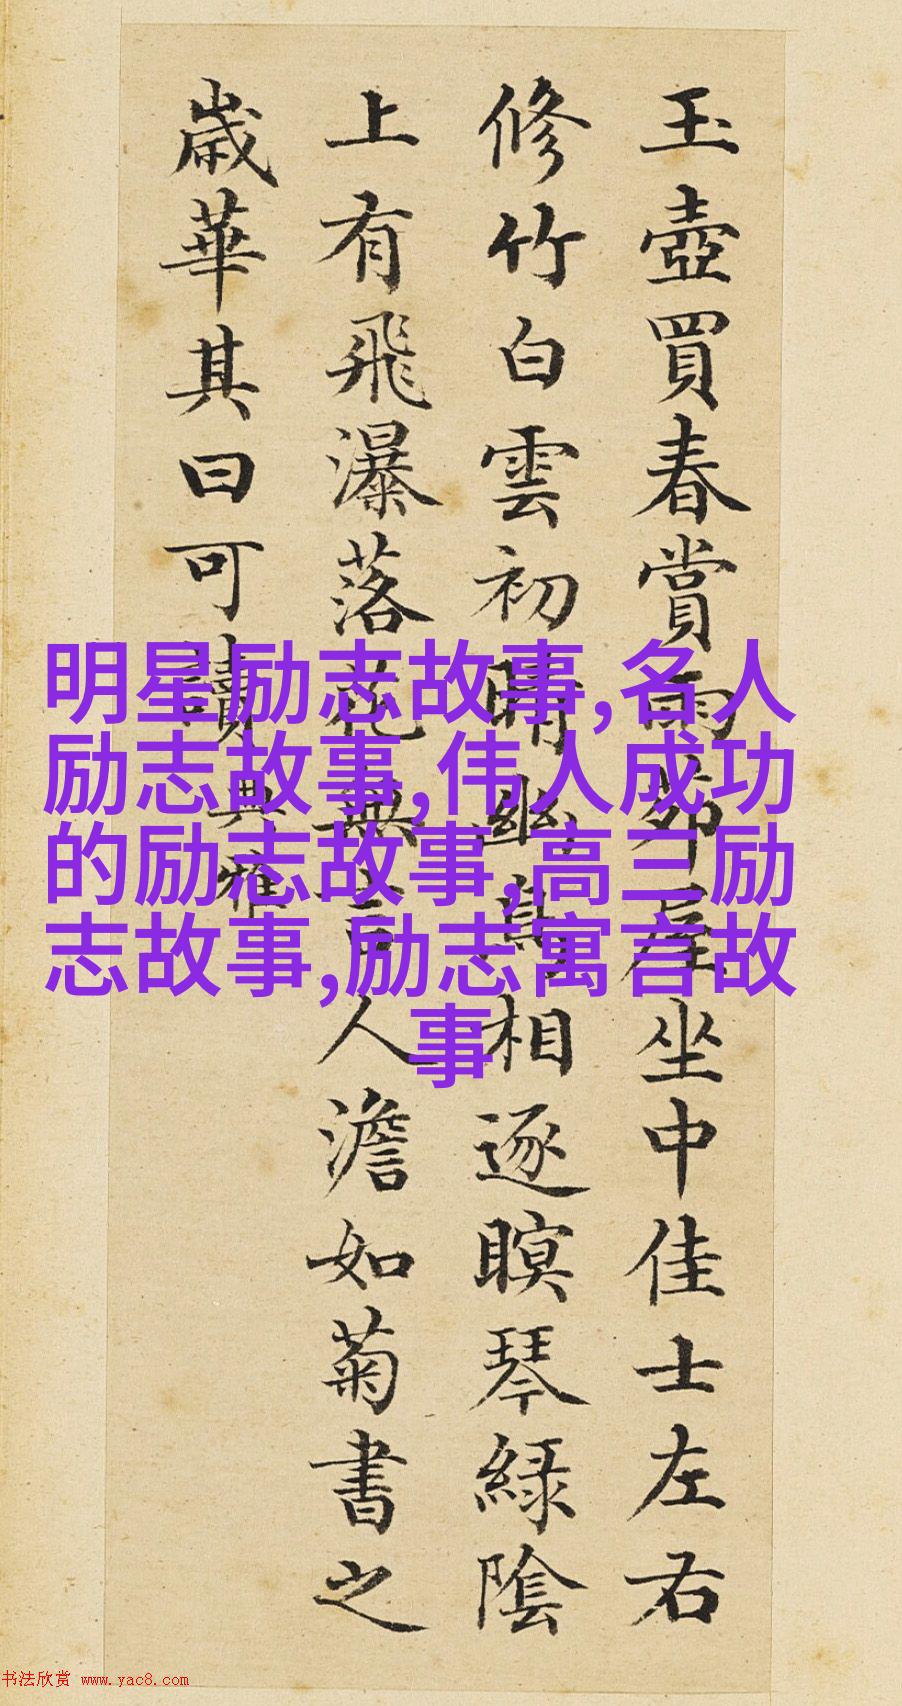 玉壺買春賞雨茆屋坐中佳士左右
修竹白雲初晴幽鳥相逐瞑琴緑陰
上有飛瀑落花無言人澹如菊書之
歲華其曰可讀 典雅
明星励志故事,名人
励志故事,伟人成功
的励志故事,高三励
志故事,励志寓言故
事
书法欣赏 www.yac8.com